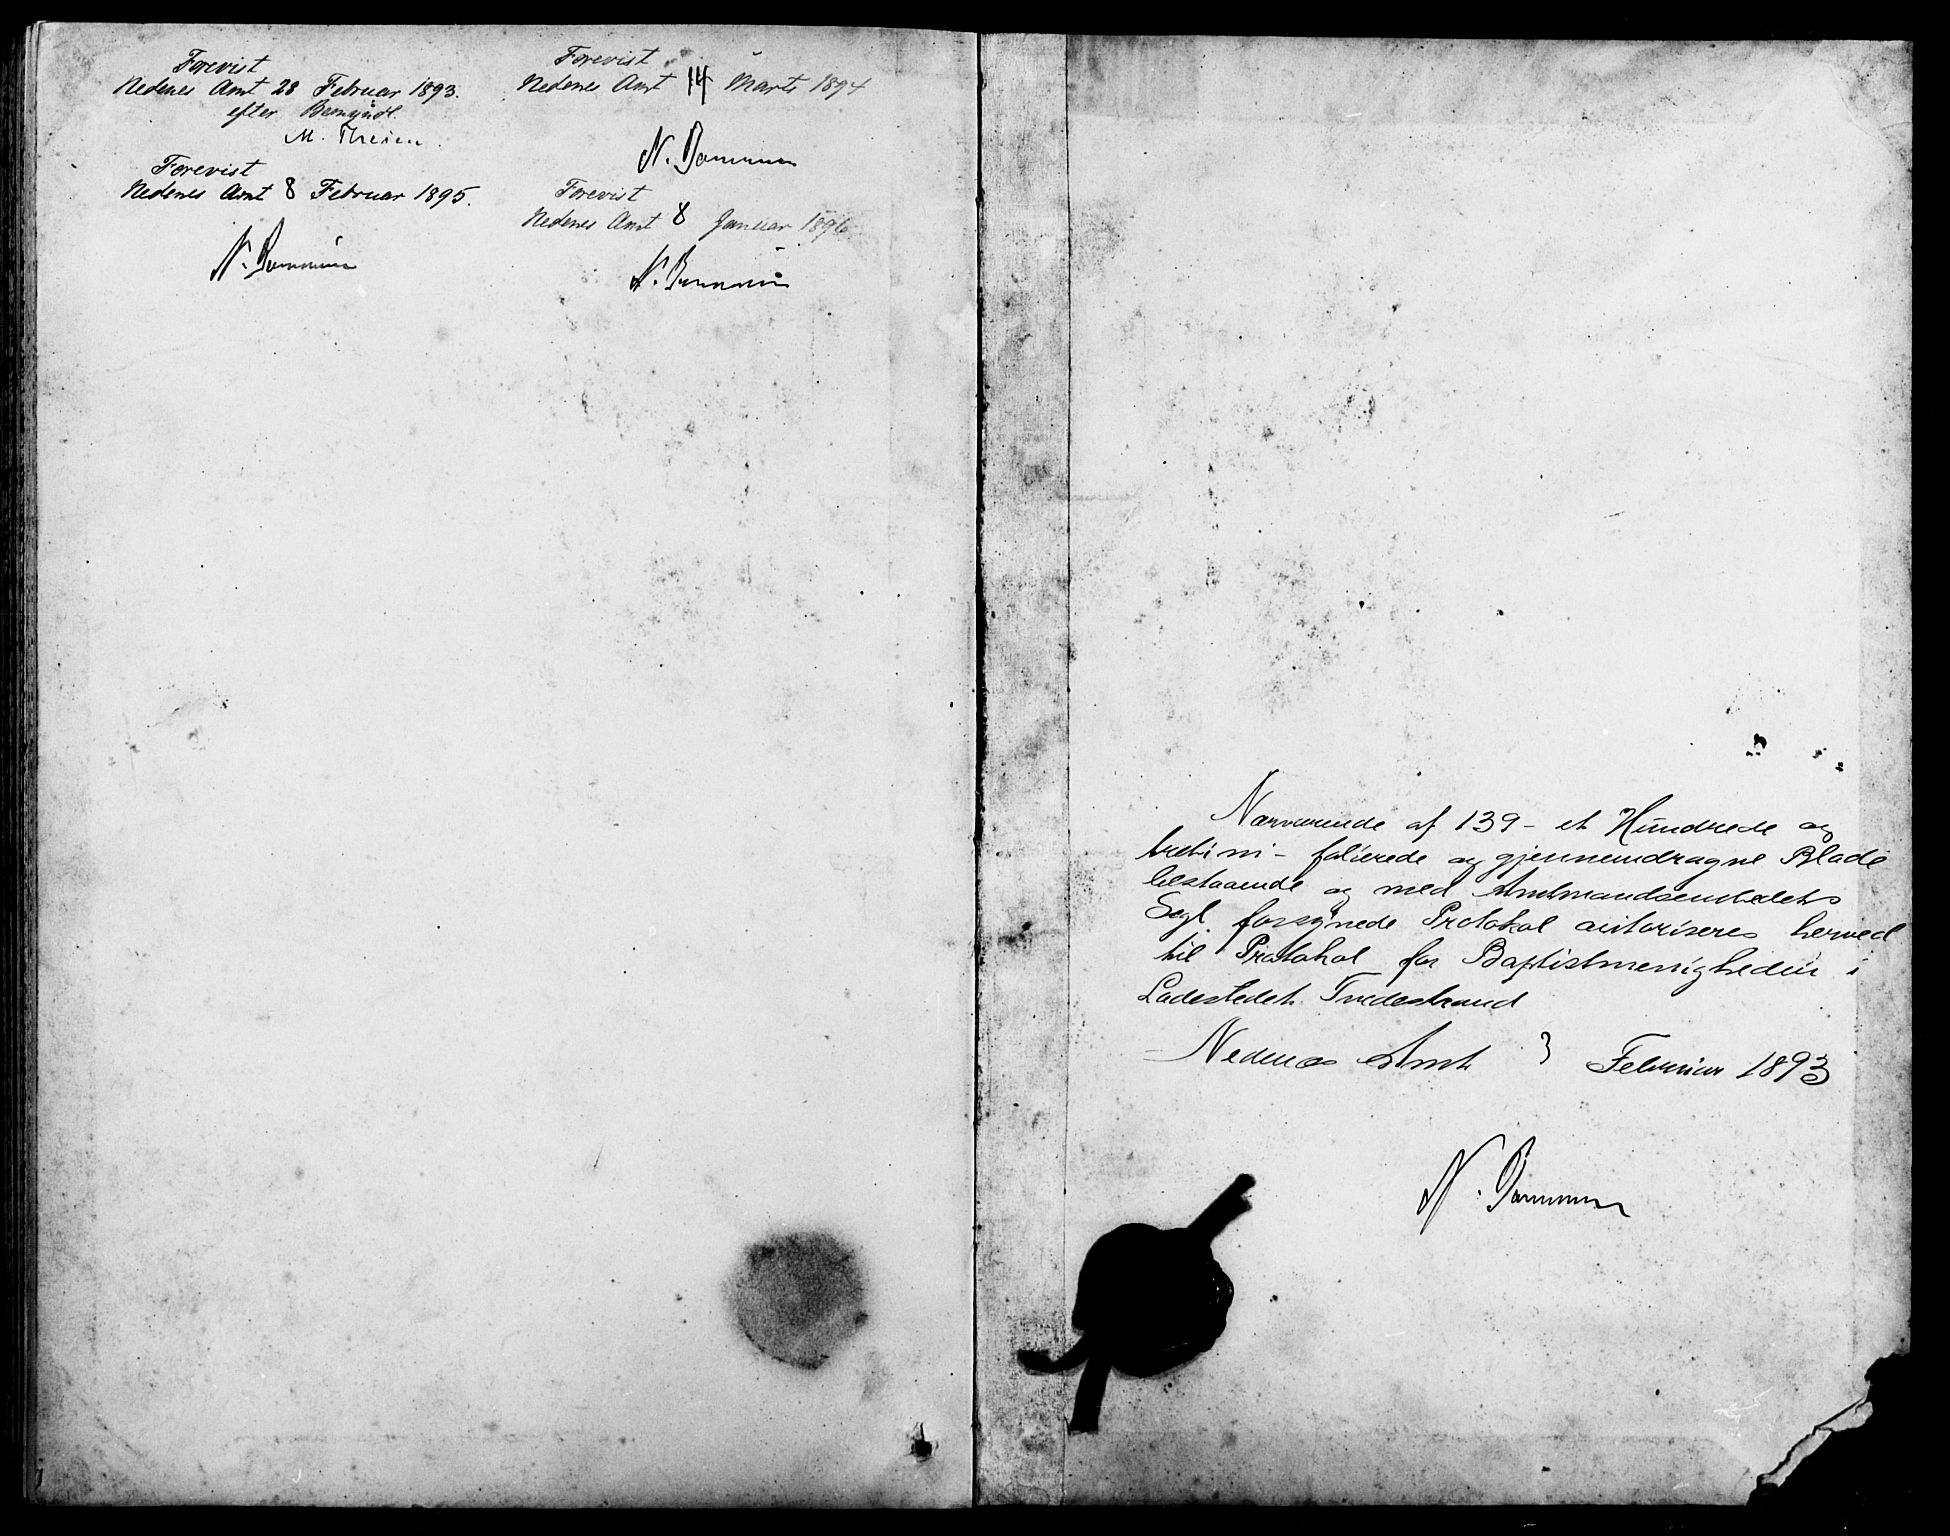 Forevist
Nedenes Amt 28 Februar 1893.
efter Bemyndl.
M. Thesen.
Forevist
Nedenes Amt 8 Februar 1895.
Forevist
Nedenes Amt 14 Marts 1894
Forevist
Nedenes Amt 8 Januar 1896
Nærværende af 139 - et Hundrede og
tretini - folierede og gjennemdragne Blade
bestaaende og med Amtmandsembedets
Segl forsynede Protokol autoriseres herved
til Protokol for Baptistmenigheden i
Ladestedet Tvedestrand
Nedenes Amt 3 Februar 1893